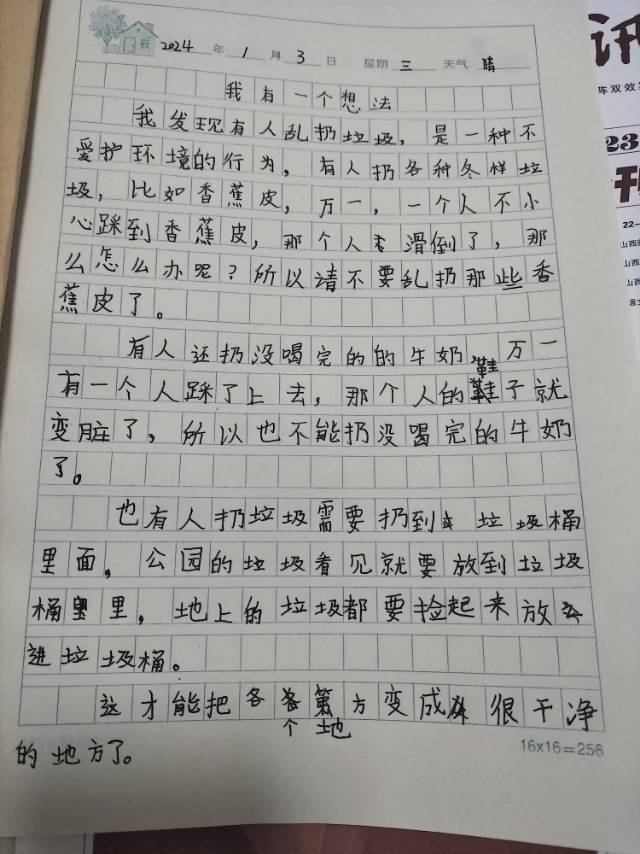 2024 年 1 月 3 日 星期 三 天气 晴
我有一个想法
我发现有人乱扔垃圾，是一种不
爱护环境的行为，有人扔各种各样垃
圾，比如香蕉皮，万一，一个人不小
心踩到香蕉皮，那个人滑倒了，那
么怎么办呢？所以请不要乱扔那些香
蕉皮了。
有人还扔没喝完的的牛奶，万一
鞋
有一个人踩了上去，那个人的鞋子就
变脏了，所以也不能扔没喝完的牛奶
了。
也有人扔垃圾需要扔到垃圾桶
里面，公园的垃圾看见就要放到垃圾
桶里，地上的垃圾都要捡起来放
进垃圾桶。
这才能把各个地方变成很干净
的地方了。
16x16=256
讯
阵双效
23
刊
22-
山西
山西